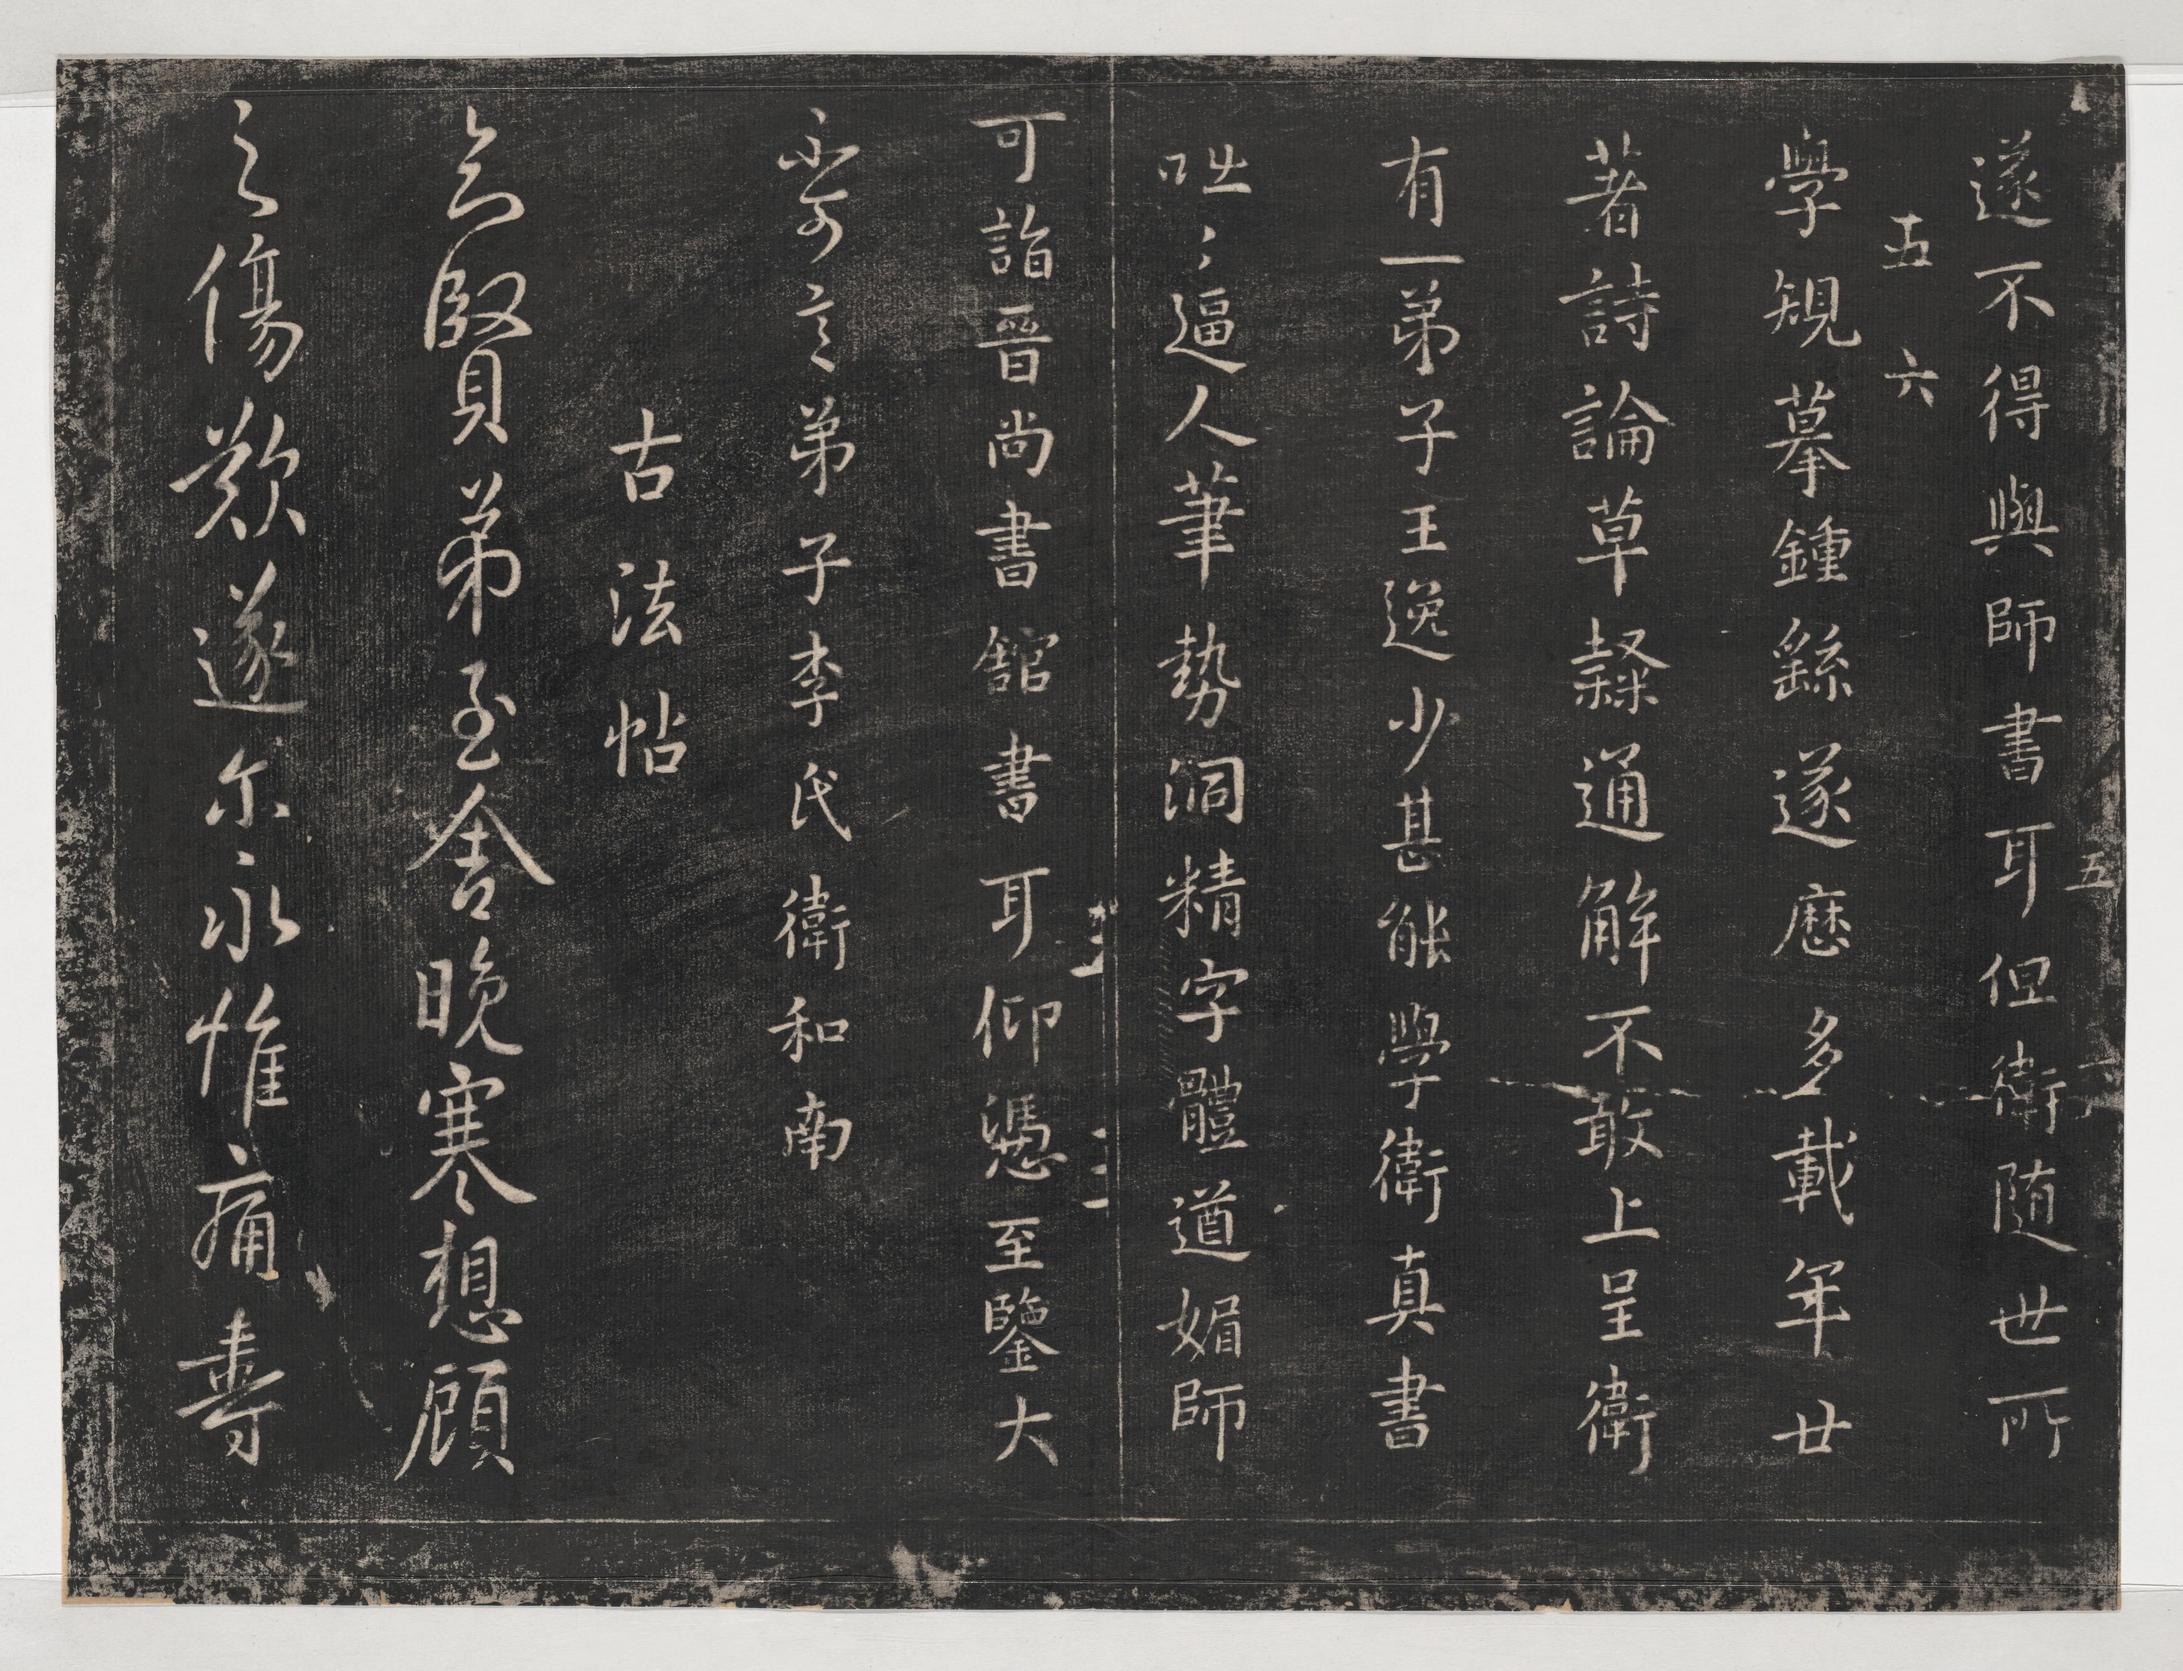 遂不得與師書耳但衛隨世所
五六
學規摹鍾繇遂歷多載年廿
著詩論草隸通解不敢上呈衛
有一弟子王逸少甚能學衛真書
咄〻逼人筆勢洞精字體遒媚師
可詣晉尚書館書耳仰憑至鑒大
弟子李氏衛和南
古法帖
賢弟至舍晚寒想顧
之傷歎遂尔永惟痛